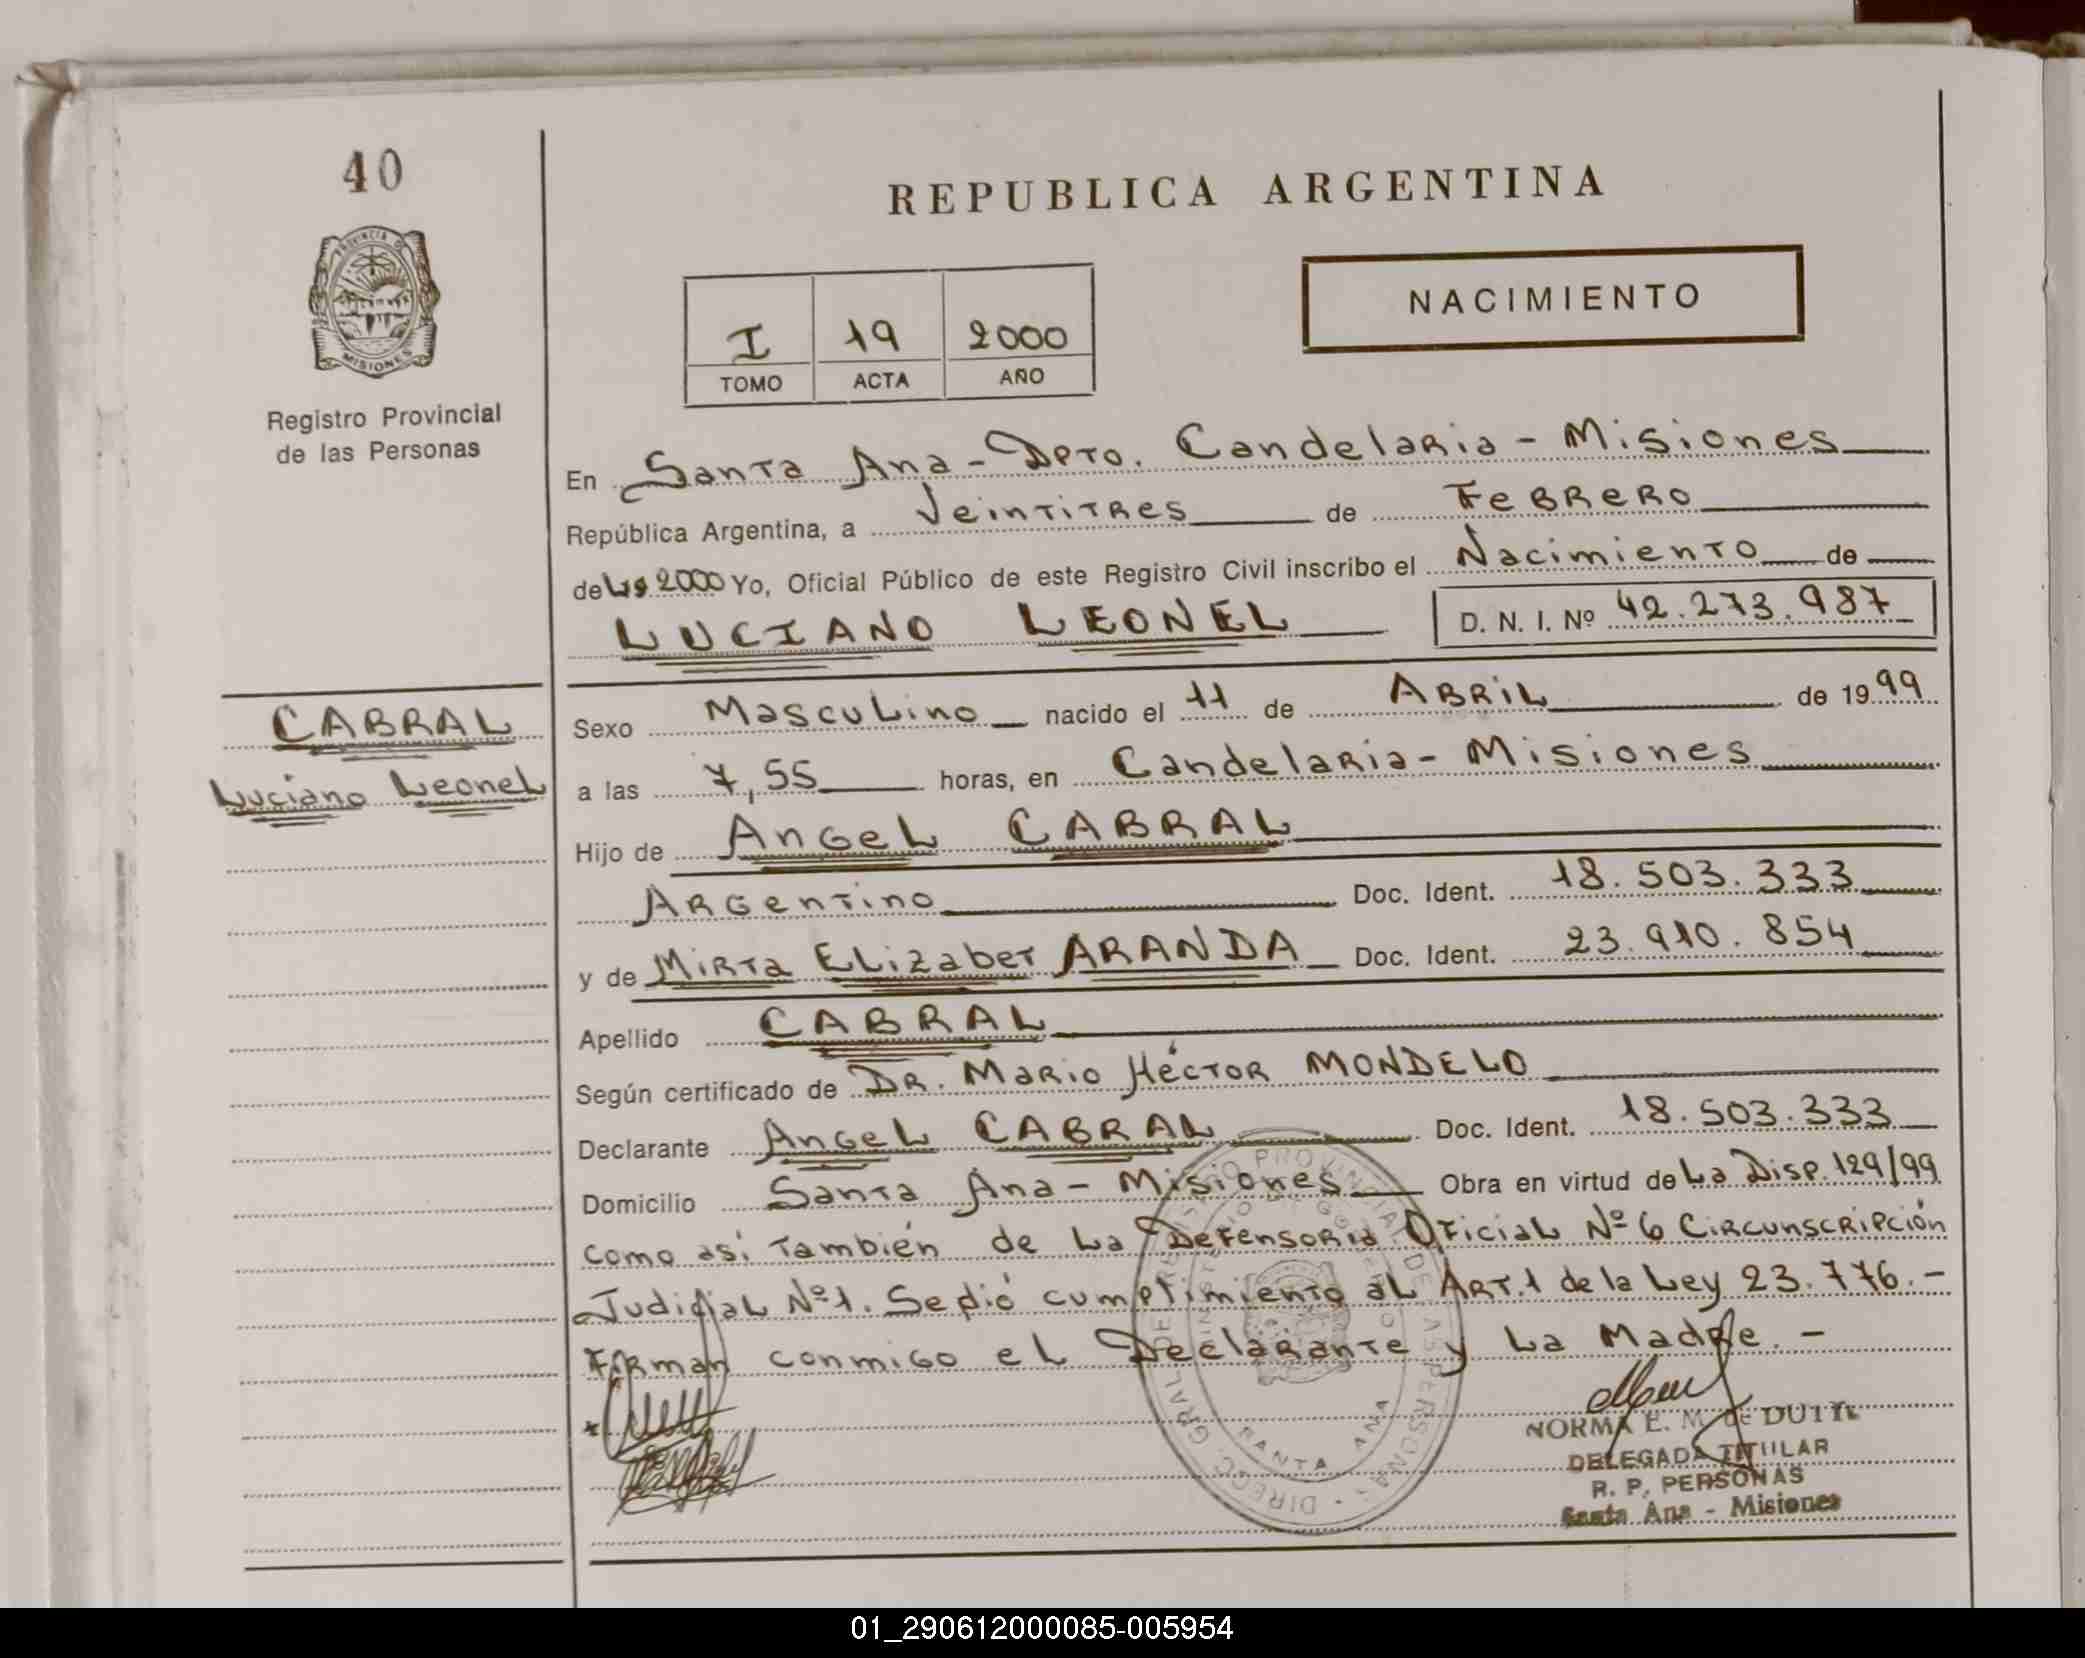 40
REPUBLICA ARGENTINA
PROVINCIA D
MISIONES
Registro Provincial
de las Personas
NACIMIENTO
I 19 2000
TOMO ACTA AÑO
En Santa Ana - Dpto. Candelaria - Misiones
República Argentina, a Veintitres de Febrero
de los 2000 Yo, Oficial Público de este Registro Civil inscribo el Nacimiento de
LUCIANO LEONEL D. N. I. Nº 42.273.987
CABRAL
Luciano Leonel
Sexo Masculino nacido el 11 de ABRIL de 1999
a las 7,55 horas, en Candelaria - Misiones
Hijo de Angel CABRAL
Argentino Doc. Ident. 18.503.333
y de Mirta Elizabet ARANDA Doc. Ident. 23.910.854
Apellido CABRAL
Según certificado de Dr. Mario Héctor MONDELO
Declarante Angel CABRAL Doc. Ident. 18.503.333
Domicilio Santa Ana - Misiones Obra en virtud de La Disp. 129/99
como así también de La Defensoria Oficial Nº 6 Circunscripción
Judicial Nº 1. Se dió cumplimiento al Art. 1 de la Ley 23.776.-
Firman conmigo el Declarante y La Madre.-
SANTA ANA
NORMA E. M. de
DELEGADA TITULAR
R. P. PERSONAS
Santa Ana - Misiones
01_290612000085-005954